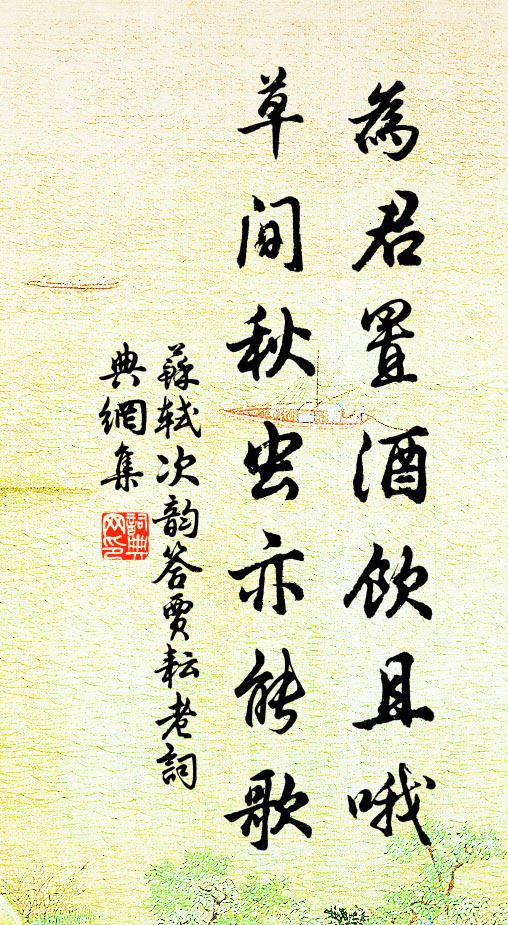 為君置酒飲且哦
草間秋虫亦能歌
蘇軾次韵答賈耘老詞
典網集
詞典网印